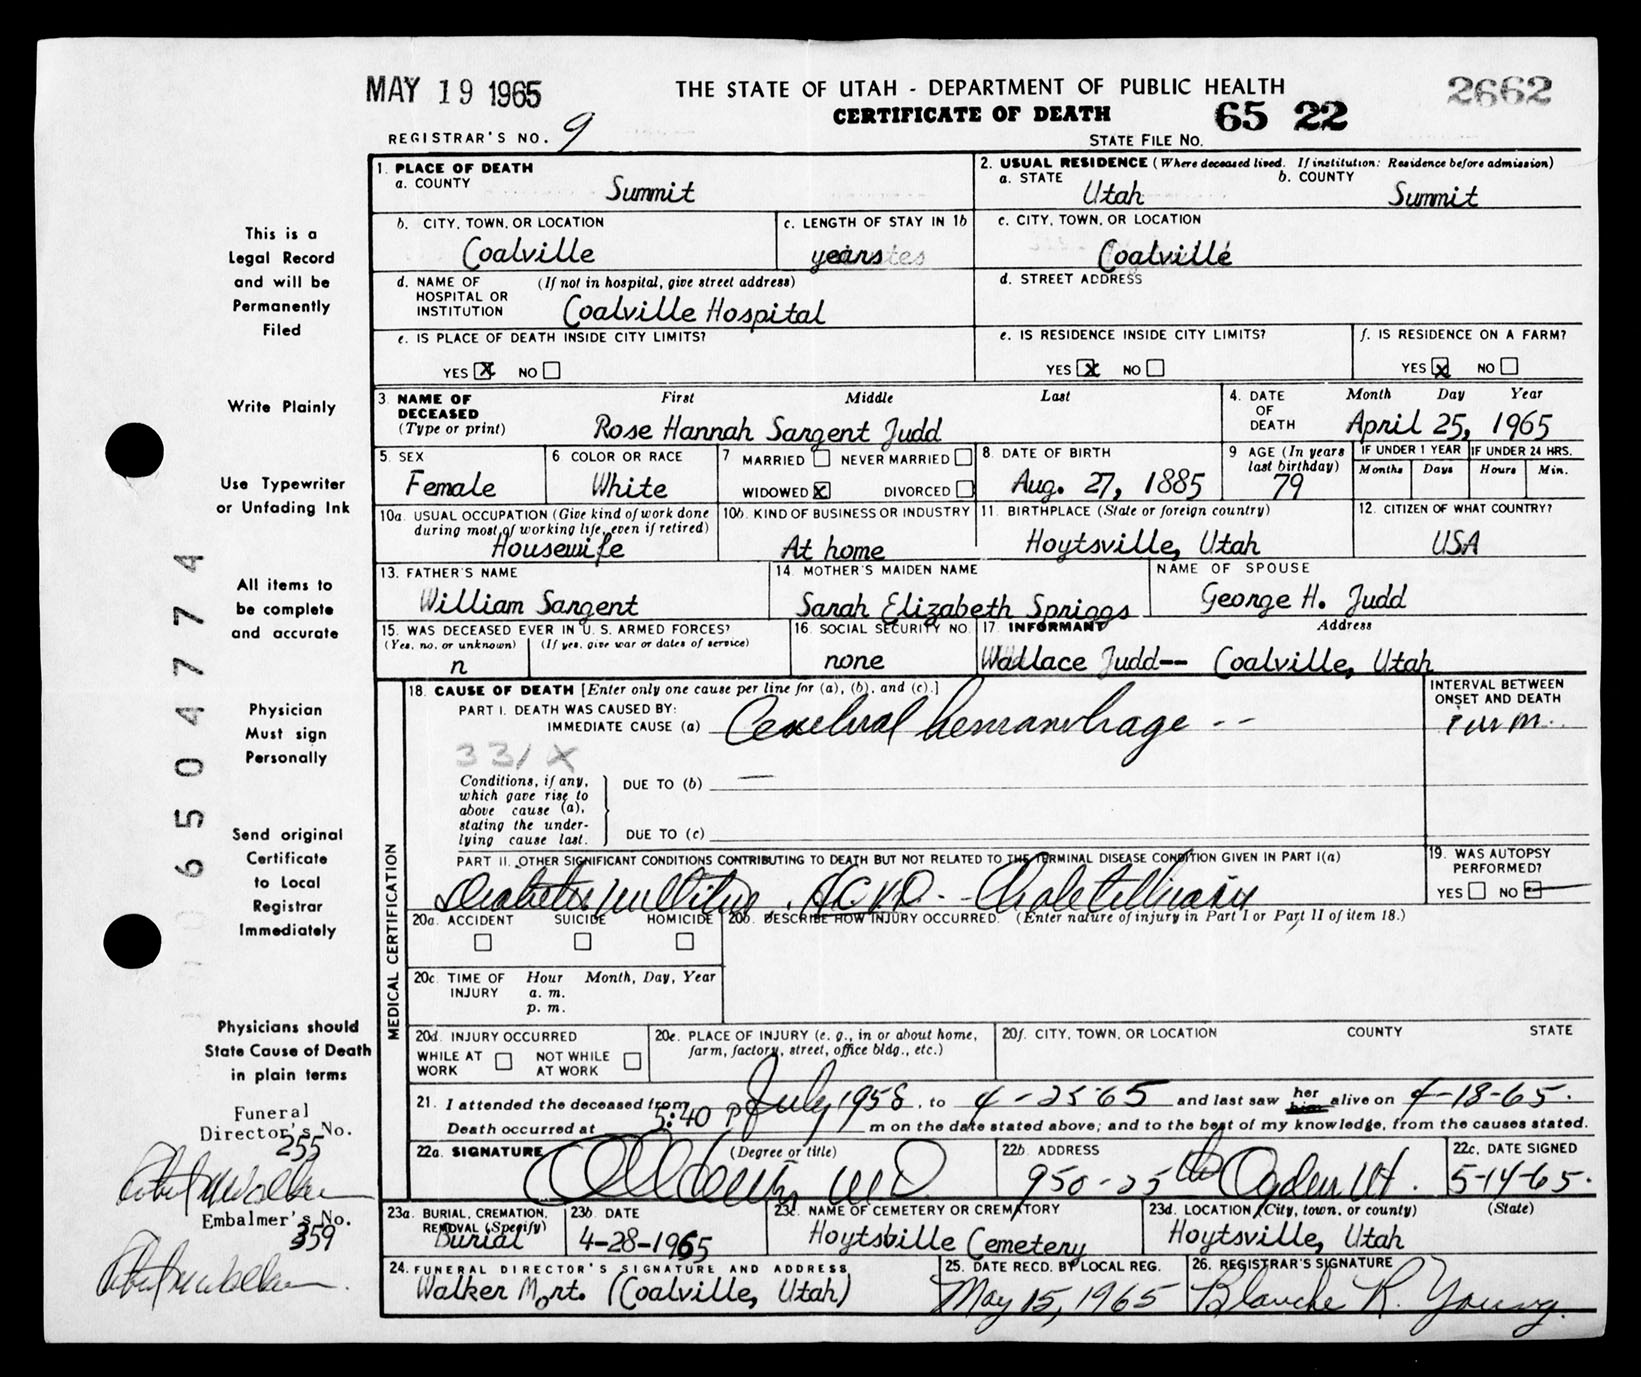 MAY 19 1965
THE STATE OF UTAH - DEPARTMENT OF PUBLIC HEALTH
2662
CERTIFICATE OF DEATH
65 22
REGISTRAR'S NO. 9
STATE FILE NO.
This is a
Legal Record
and will be
Permanently
Filed
Write Plainly
Use Typewriter
or Unfading Ink
All items to
be complete
and accurate
Physician
Must sign
Personally
Send original
Certificate
to Local
Registrar
Immediately
Physicians should
State Cause of Death
in plain terms
Funeral
Director's No.
255
Embalmer's No.
359
650 4774
1. PLACE OF DEATH
a. COUNTY
Summit
2. USUAL RESIDENCE (Where deceased lived. If institution: Residence before admission)
a. STATE
Utah
b. COUNTY
Summit
b. CITY, TOWN, OR LOCATION
Coalville
c. LENGTH OF STAY IN 1b
years
c. CITY, TOWN, OR LOCATION
Coalville
d. NAME OF HOSPITAL OR INSTITUTION (If not in hospital, give street address)
Coalville Hospital
d. STREET ADDRESS
e. IS PLACE OF DEATH INSIDE CITY LIMITS?
YES X NO
e. IS RESIDENCE INSIDE CITY LIMITS?
YES X NO
f. IS RESIDENCE ON A FARM?
YES X NO
3. NAME OF DECEASED (Type or print)
First Middle Last
Rose Hannah Sargent Judd
4. DATE OF DEATH
Month Day Year
April 25, 1965
5. SEX
Female
6 COLOR OR RACE
White
7 MARRIED NEVER MARRIED
WIDOWED X DIVORCED
8. DATE OF BIRTH
Aug. 27, 1885
9 AGE (In years last birthday)
79
IF UNDER 1 YEAR
Months Days
IF UNDER 24 HRS.
Hours Min.
10a. USUAL OCCUPATION (Give kind of work done during most of working life, even if retired)
Housewife
10b. KIND OF BUSINESS OR INDUSTRY
At home
11. BIRTHPLACE (State or foreign country)
Hoytsville, Utah
12. CITIZEN OF WHAT COUNTRY?
USA
13. FATHER'S NAME
William Sargent
14. MOTHER'S MAIDEN NAME
Sarah Elizabeth Spriggs
NAME OF SPOUSE
George H. Judd
15. WAS DECEASED EVER IN U. S. ARMED FORCES?
(Yes, no, or unknown) (If yes, give war or dates of service)
n
16. SOCIAL SECURITY NO.
none
17. INFORMANT Address
Wallace Judd-- Coalville, Utah
MEDICAL CERTIFICATION
18. CAUSE OF DEATH [Enter only one cause per line for (a), (b), and (c).]
INTERVAL BETWEEN ONSET AND DEATH
PART I. DEATH WAS CAUSED BY:
IMMEDIATE CAUSE (a) Cerebral hemorrhage --
331X
Conditions, if any, which gave rise to above cause (a), stating the underlying cause last.
DUE TO (b) —
DUE TO (c)
PART II. OTHER SIGNIFICANT CONDITIONS CONTRIBUTING TO DEATH BUT NOT RELATED TO THE TERMINAL DISEASE CONDITION GIVEN IN PART I(a)
Diabetes Mellitus
19. WAS AUTOPSY PERFORMED?
YES NO
20a. ACCIDENT SUICIDE HOMICIDE
20b. DESCRIBE HOW INJURY OCCURRED. (Enter nature of injury in Part I or Part II of item 18.)
20c. TIME OF INJURY Hour Month, Day, Year
a. m.
p. m.
20d. INJURY OCCURRED
WHILE AT WORK NOT WHILE AT WORK
20e. PLACE OF INJURY (e. g., in or about home, farm, factory, street, office bldg., etc.)
20f. CITY, TOWN, OR LOCATION COUNTY STATE
21. I attended the deceased from July 1958, to 4-25-65 and last saw her him alive on 4-18-65.
Death occurred at 5:40 P m on the date stated above; and to the best of my knowledge, from the causes stated.
22a. SIGNATURE (Degree or title)
MD
22b. ADDRESS
950-25th Ogden Ut.
22c. DATE SIGNED
5-14-65.
23a. BURIAL, CREMATION, REMOVAL (Specify)
Burial
23b. DATE
4-28-1965
23c. NAME OF CEMETERY OR CREMATORY
Hoytsbille Cemetery
23d. LOCATION (City, town, or county) (State)
Hoytsville, Utah
24. FUNERAL DIRECTOR'S SIGNATURE AND ADDRESS
Walker Mort. (Coalville, Utah)
25. DATE RECD. BY LOCAL REG.
May 15, 1965
26. REGISTRAR'S SIGNATURE
Blanche R. Young.